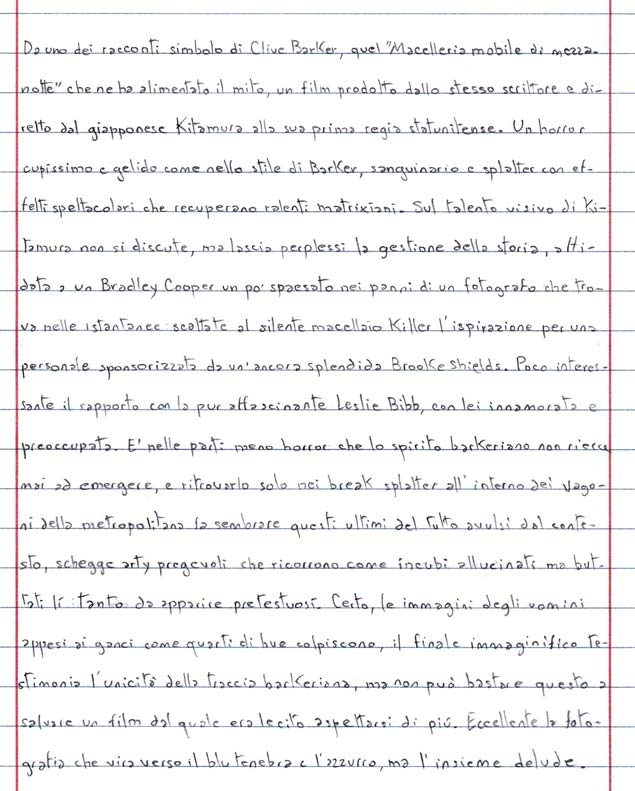 Da uno dei racconti simbolo di Clive Barker, quel "Macelleria mobile di mezza-
notte" che ne ha alimentato il mito, un film prodotto dallo stesso scrittore e di-
retto dal giapponese Kitamura alla sua prima regia statunitense. Un horror
cupissimo e gelido come nello stile di Barker, sanguinario e splatter con ef-
fetti spettacolari che recuperano ralenti matrixiani. Sul talento visivo di Ki-
tamura non si discute, ma lascia perplessi la gestione della storia, affi-
data a un Bradley Cooper un po' spaesato nei panni di un fotografo che tro-
va nelle istantanee scattate al silente macellaio Killer l'ispirazione per una
personale sponsorizzata da un'ancora splendida Brooke Shields. Poco interes-
sante il rapporto con la pur affascinante Leslie Bibb, con lei innamorata e
preoccupata. E' nelle parti meno horror che lo spirito barkeriano non riesce
mai ad emergere, e ritrovarlo solo nei break splatter all'interno dei vago-
ni della metropolitana fa sembrare questi ultimi del tutto avulsi dal conte-
sto, schegge arty pregevoli che ricorrono come incubi allucinati ma but-
tati lí tanto da apparire pretestuosi. Certo, le immagini degli uomini
appesi ai ganci come quarti di bue colpiscono, il finale immaginifico te-
stimonia l'unicità della traccia barkeriana, ma non può bastare questo a
salvare un film dal quale era lecito aspettarsi di più. Eccellente la foto-
grafia che vira verso il blu tenebra e l'azzurro, ma l'insieme delude.